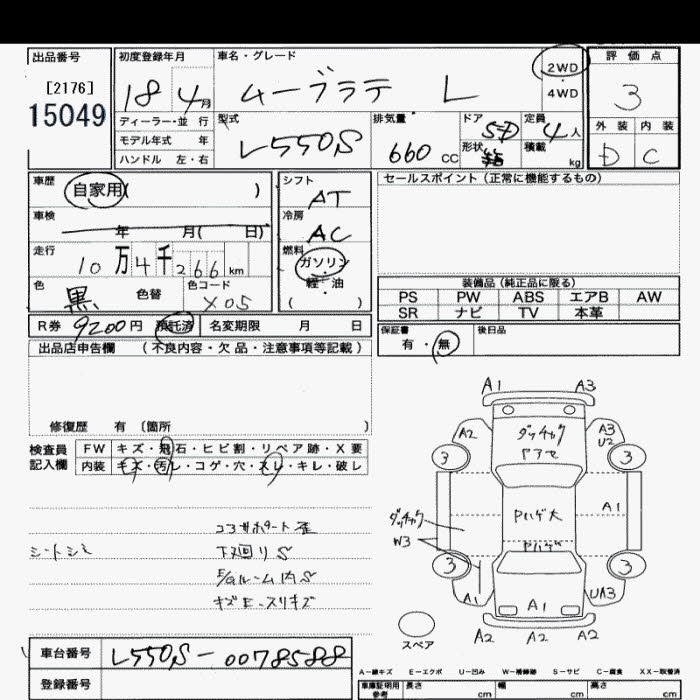 出品番号
[2176]
15049
初度登録年月
18 4月
車名・グレード
ムーブラテ L
2WD
・
4WD
評価点
3
外装 内装
D C
ディーラー・並 行
モデル年式 年
ハンドル 左・右
型式
L550S
排気量
660 CC
ドア
5D
形状
定員
4人
積載
kg
車歴
自家用( )
車検
年 月( 日)
走行
10万4千266km
色
黒
色替
色コード
X05
シフト
AT
冷房
AC
燃料
ガソリン
・
軽・油
( )
セールスポイント(正常に機能するもの)
装備品(純正品に限る)
PS PW ABS エアB AW
SR ナビ TV 本革
保証書
有・無
後日品
R券 9200円 預託済
名変期限 月 日
出品店申告欄 (不良内容・欠品・注意事項等記載)
修復歴 有 〔箇所 〕
検査員
記入欄
FW キズ・飛石・ヒビ割・リペア跡・X要
内装 キズ・汚レ・コゲ・穴・スレ・キレ・破レ
コアサポート歪
シートシミ
下廻りS
E/gルーム内S
キズE-スリキズ
A1 A3
A2
ダッチャク
ヤアセ
A3
U2
3 3
ダッチャク
W3
Pハゲ大
Pハゲ
A1
3 3
A1
A1
UA3
A2 A2 A2
スペア
車台番号
L550S-0078588
登録番号
A-線キズ E-エクボ U-凹み W-補修跡 S-サビ C-腐食 XX-取替済
車庫証明用
参考
長さ cm
幅 cm
高さ cm